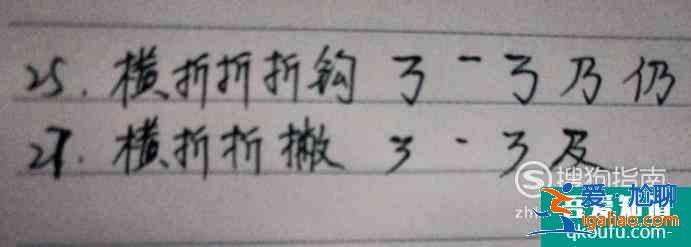 25. 横折折折钩 𠄎 一 𠄎 乃 仍
27. 横折折撇 3 - 3 及
搜狗指南
爱尬聊
igaliao.com